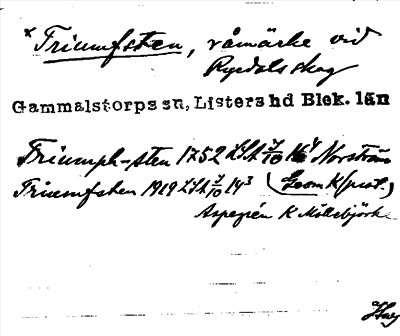 *Triumfsten, råmärke vid
Ryedals skog
Gammalstorps sn, Listers hd Blek. län
Triumph-sten 1752 LSA Norström
Triumfsten 1919 LSA 14³ (Geom K/prot.)
Aspegrén K Möllebjörke